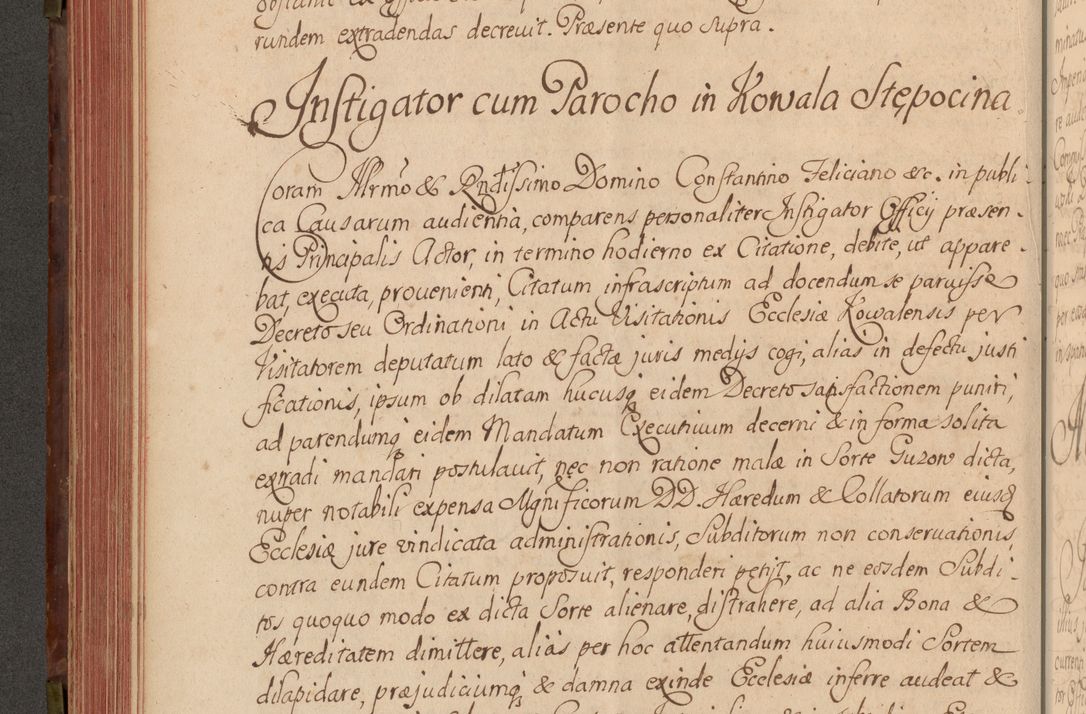 rundem extradendas decrevit. Præsente quo supra.
Instigator cum Parocho in Kowala Stępocina
Coram Illrmo & Rndissimo Domino Constantino Feliciano &c. in publi-
ca Causarum audientia, comparens personaliter Instigator Officij præsen-
tis Principalis Actor, in termino hodierno ex Citatione, debite, ut appare-
bat, executa, provenienti, Citatum infrascriptum ad docendum se paruisse
Decreto seu Ordinationi in Actu Visitationis Ecclesiæ Kowalensis per
Visitatorem deputatum lato & factæ juris medijs cogi, alias in defectu justi
ficationis, ipsum ob dilatam hucusq eidem Decreto satisfactionem puniri,
ad parendumq eidem Mandatum Executivum decerni & in forma solita
extradi mandari postulavit, nec non ratione malæ in Sorte Guzow dicta,
nuper notabili expensa Mgnificorum DD. Hæredum & Collatorum eiusd
Ecclesiæ jure vindicata administrationis, Subditorum non conservationis,
contra eundem Citatum proposuit, responderi petijt, ac ne eosdem Subdi-
tos quoquo modo ex dicta Sorte alienare, distrahere, ad alia Bona &
Hæreditatem dimittere, alias per hoc attentandum huiusmodi Sortem
dilapidare, præjudiciumq & damna exinde Ecclesiæ inferre audeat &